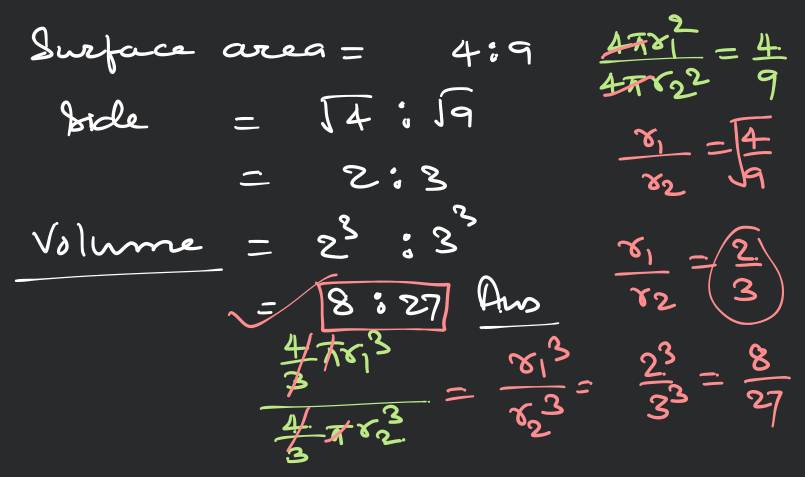 Surface area = 4:9
Side = √4 : √9
= 2:3
Volume = 2³ : 3³
= 8:27 Ans
4πr₁²/4πr₂² = 4/9
r₁/r₂ = √(4/9)
r₁/r₂ = 2/3
(4/3 πr₁³)/(4/3 πr₂³) = r₁³/r₂³ = 2³/3³ = 8/27